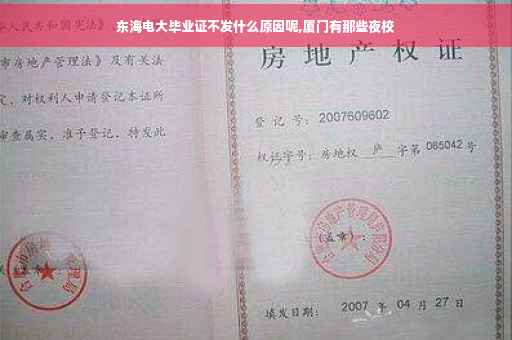 东海电大毕业证不发什么原因呢,厦门有那些夜校
人民共和国宪法》
市房地产管理法》及有关法
定，对权利人申请登记本证所
审查属实，准予登记，特发此
房地产权证
登记号：2007609602
权证字号：房地权 庐 字第 065042 号
（盖章）：
填发日期：2007 年 04 月 27 日